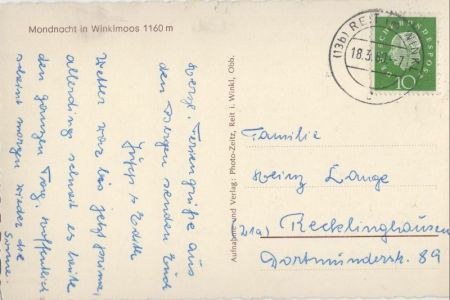 Mondnacht in Winklmoos 1160 m
Herzl. Feriengrüße aus
den Bergen senden Euch
Jupp + Edith
Wetter war bis jetzt prima,
allerdings schneit es heute
den ganzen Tag. Hoffentlich
scheint morgen wieder die
Sonne.
Aufnahme und Verlag: Photo-Zeitz, Reit i. Winkl, Obb.
(13b) REIT IM WINKL
18.3.60
DEUTSCHE BUNDESPOST
10
Familie
Heinz Lange
21a) Recklinghausen
Dortmunderstr. 89